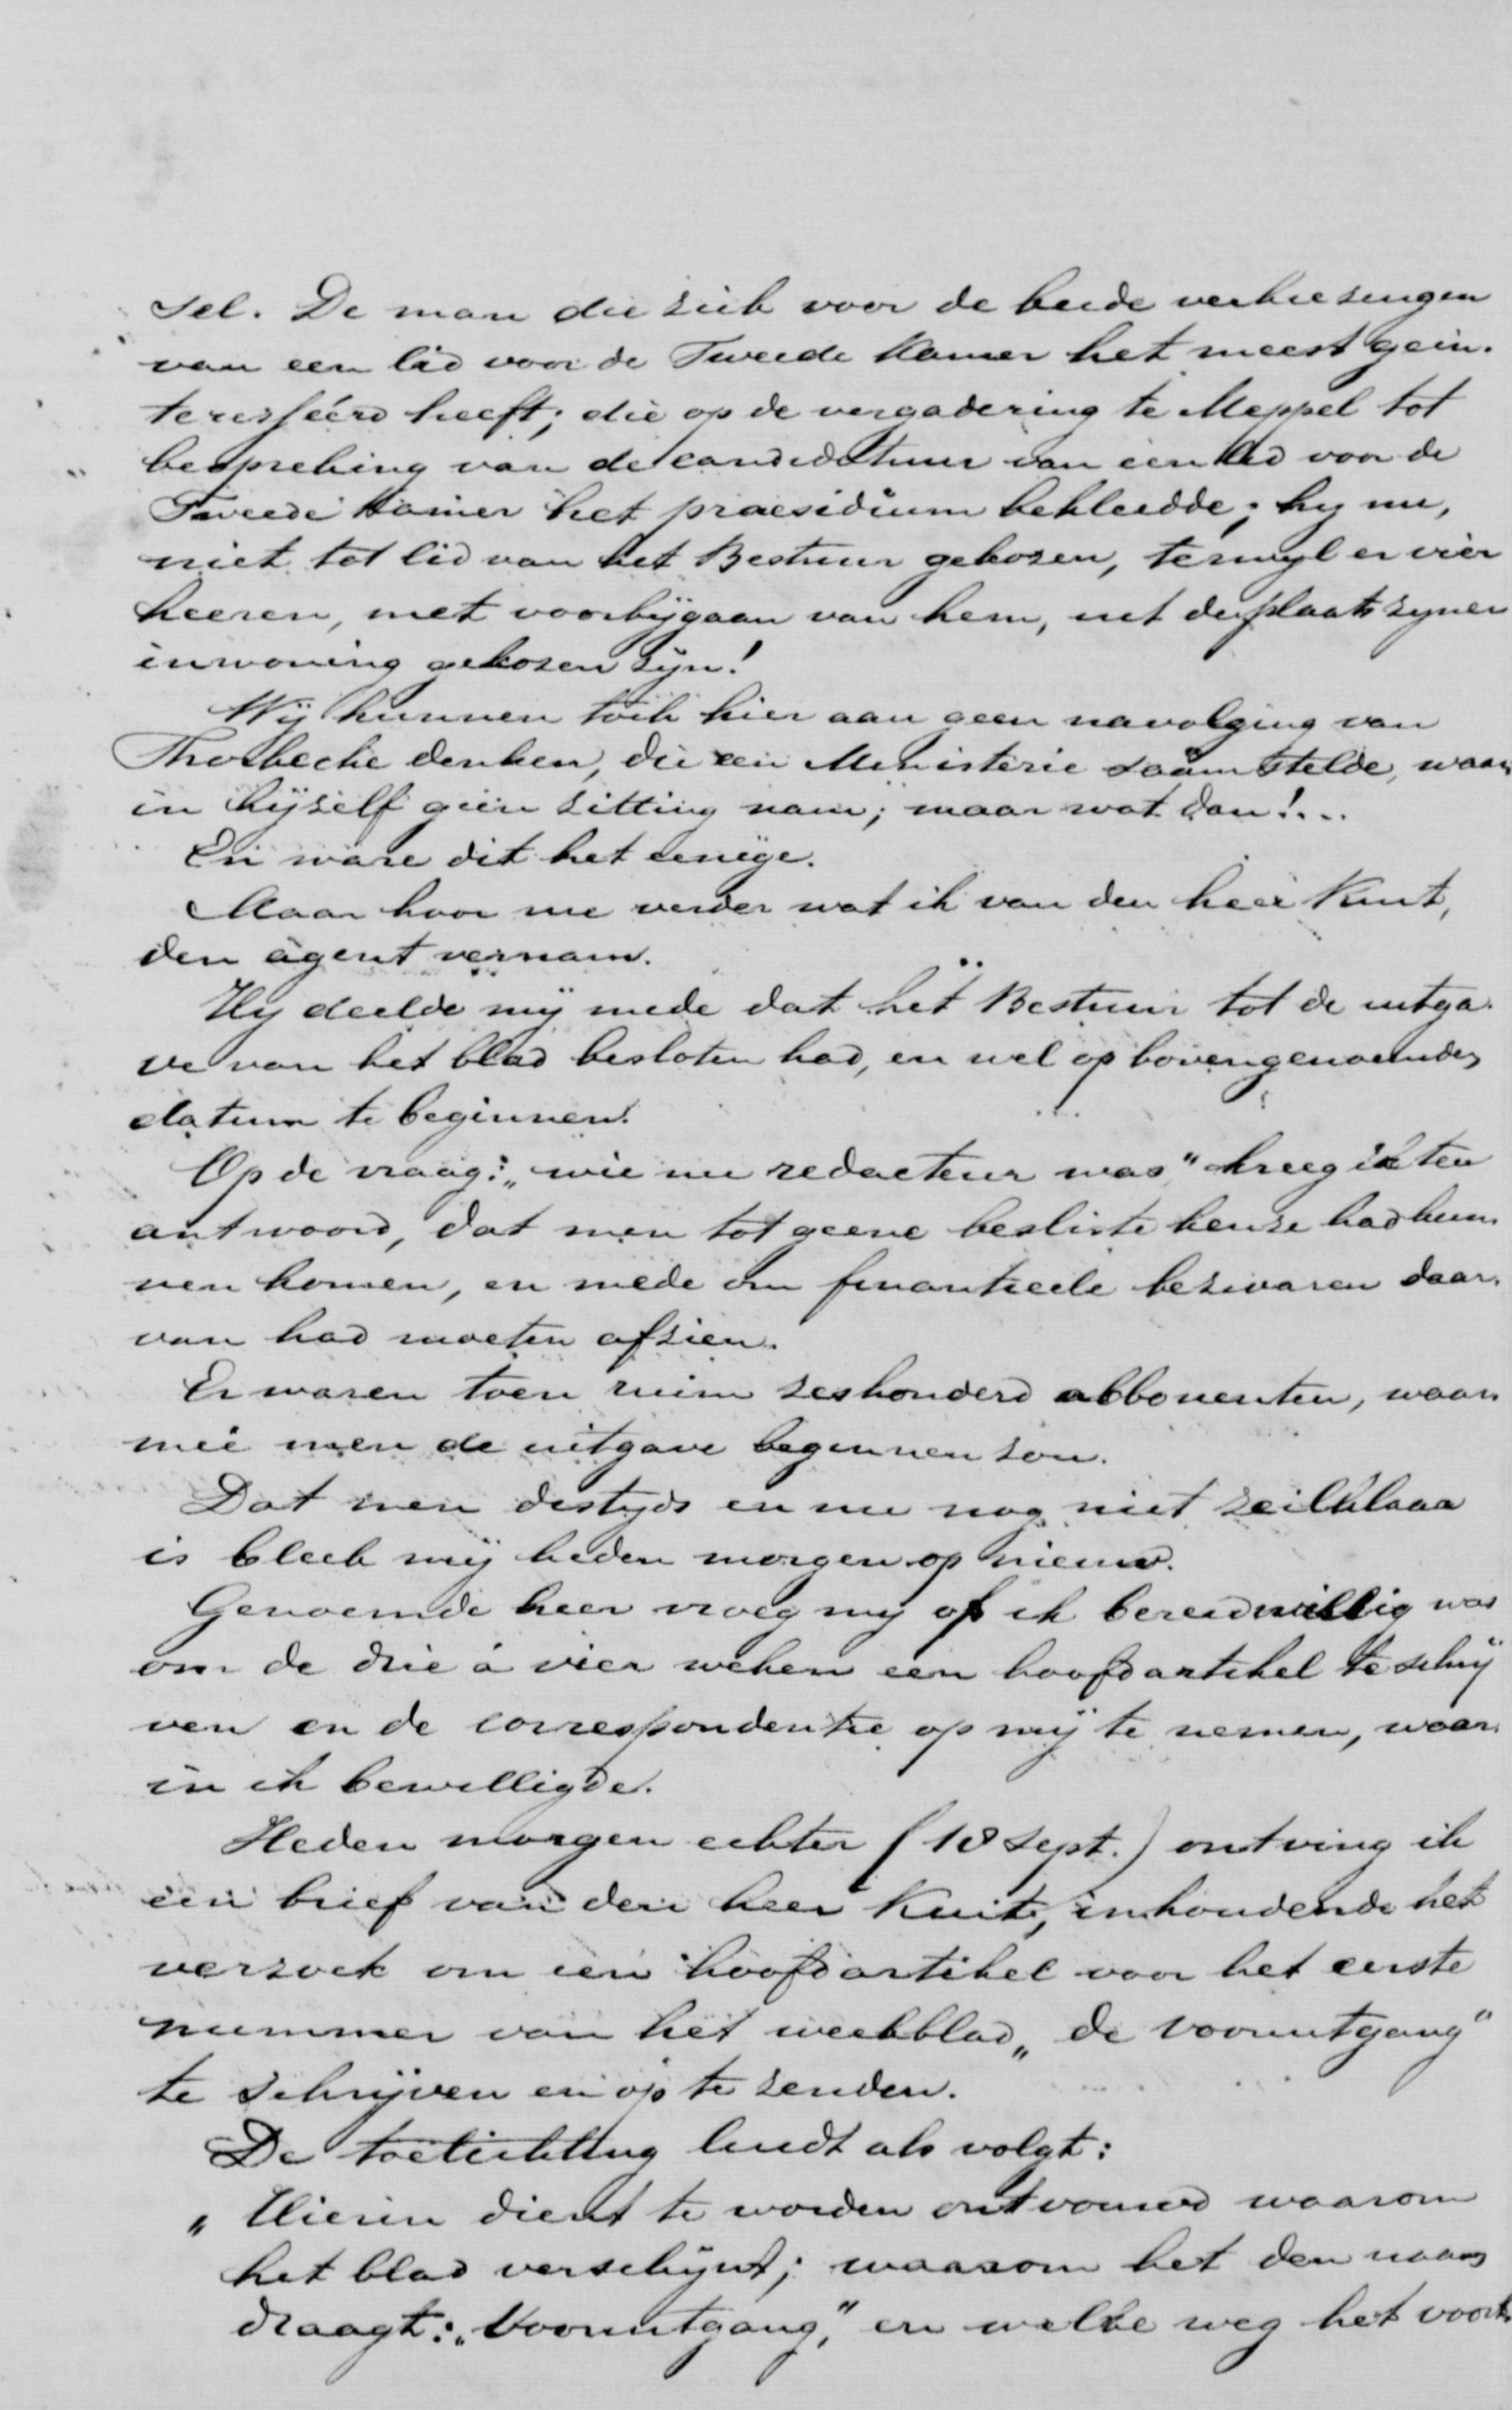 sel. De man die zich voor de beide verkiezingen
van een lid voor de Tweede Kamer het meest gein-
teresseérd heeft; die op de vergadering te Meppel tot
bespreking van de candidatuur van een lid voor de
Tweede Kamer het praesidium bekleedde; hy nu,
niet tot lid van het Bestuur gekozen, terwyl er vier
heeren, met voorbijgaan van hem, uit de plaats zyner
inwoning gekozen zijn!
Wij kunnen toch hier aan geen navolging van
Thorbecke denken, die een Ministerie saâmstelde, waar-
in hijzelf geen zitting nam; maar wat dan!...
En ware dit het eenige.
Maar hoor me verder wat ik van den heer Kuit,
den agent vernam.
Hy deelde mij mede dat het Bestuur tot de uitga-
ve van het blad besloten had, en wel op bovengenoemden
datum te beginnen.
Op de vraag: „wie nu redacteur was" kreeg ik ten
antwoord, dat men tot geene besliste keuze had kun-
nen komen, en mede om finantieele bezwaren daar-
van had moeten afzien.
Er waren toen ruim zeshonderd abbonenten, waar-
meê men de uitgave beginnen zou.
Dat men destyds en nu nog niet zeilklaar
is bleek mij heden morgen op nieuw.
Genoemde heer vroeg my of ik bereidwillig was
om de drie à vier weken een hoofdartikel te schrij
ven en de correspondentie op mij te nemen, waar-
in ik bewilligde.
Heden morgen echter (18 Sept.) ontving ik
een brief van den heer Kuit, inhoudende het
verzoek om een hoofdartikel voor het eerste
nummer van het weekblad „de vooruitgang"
te schrijven en op te zenden.
De toelichting luidt als volgt:
„Hierin dient te worden ontvouwd waarom
het blad verschijnt; waarom het den naam
draagt: „Vooruitgang," en welke weg het voort-